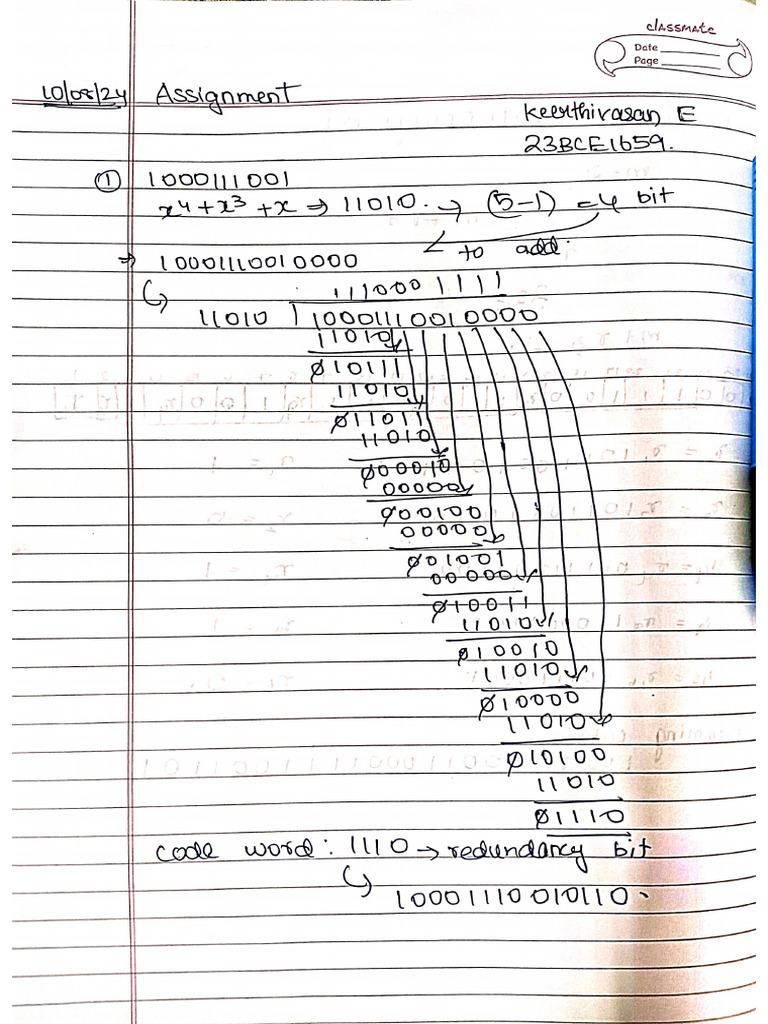 classmate
Date
Page
10/08/24 Assignment
Keerthivasan E
23BCE1659.
① 1000111001
x⁴+x³+x ⇒ 11010. → (5-1) = 4 bit
to add.
⇒ 10001110010000
1110001111
11010 10001110010000
11010
010111
11010
011011
11010
000010
00000
000100
00000
001001
00000
010011
11010
010010
11010
010000
11010
010100
11010
01110
code word: 1110 → redundancy bit
10001110010110.